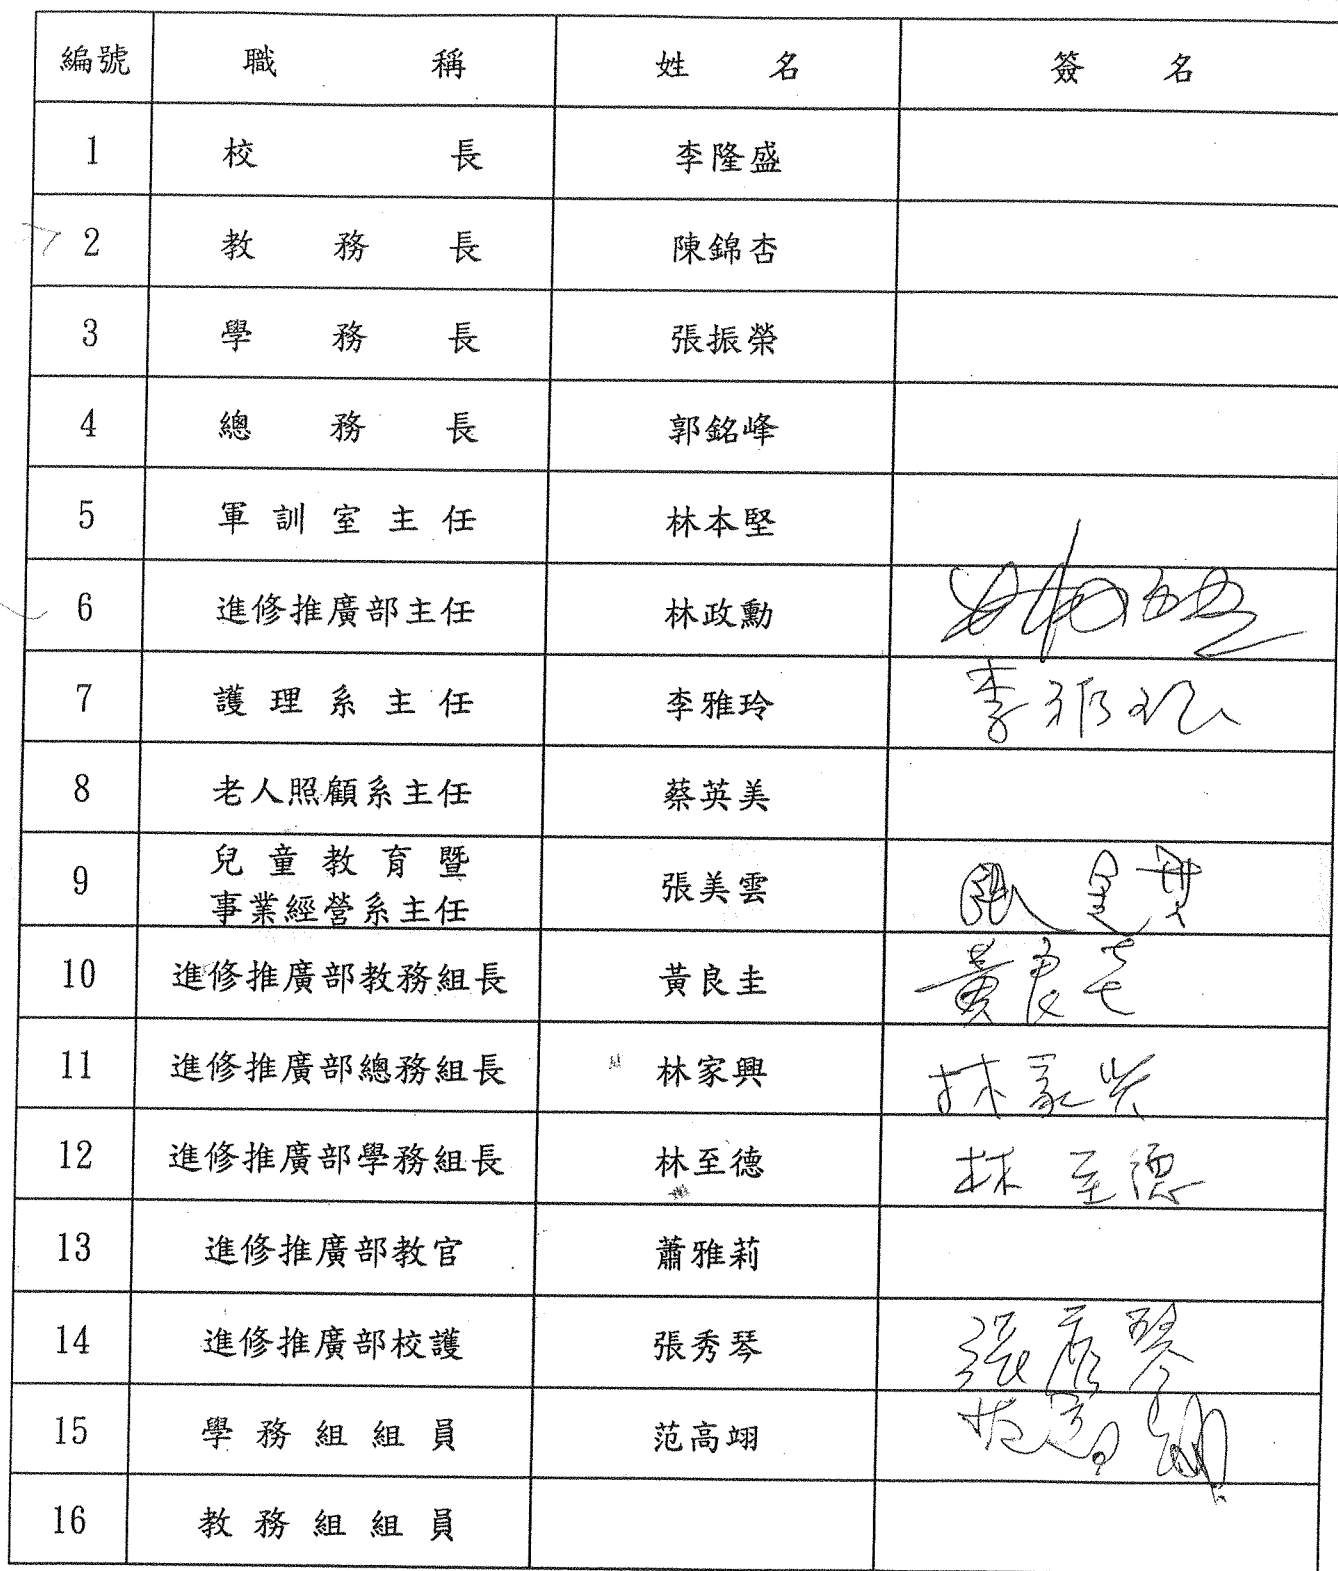 編號 職稱 姓名 簽名
1 校長 李隆盛
2 教務長 陳錦杏
3 學務長 張振榮
4 總務長 郭銘峰
5 軍訓室主任 林本堅
6 進修推廣部主任 林政勳
7 護理系主任 李雅玲 李雅玲
8 老人照顧系主任 蔡英美
9 兒童教育暨
事業經營系主任 張美雲
10 進修推廣部教務組長 黃良圭 黃良圭
11 進修推廣部總務組長 林家興 林家兴
12 進修推廣部學務組長 林至德 林至德
13 進修推廣部教官 蕭雅莉
14 進修推廣部校護 張秀琴 張秀琴
15 學務組組員 范高翊 范高翊
16 教務組組員